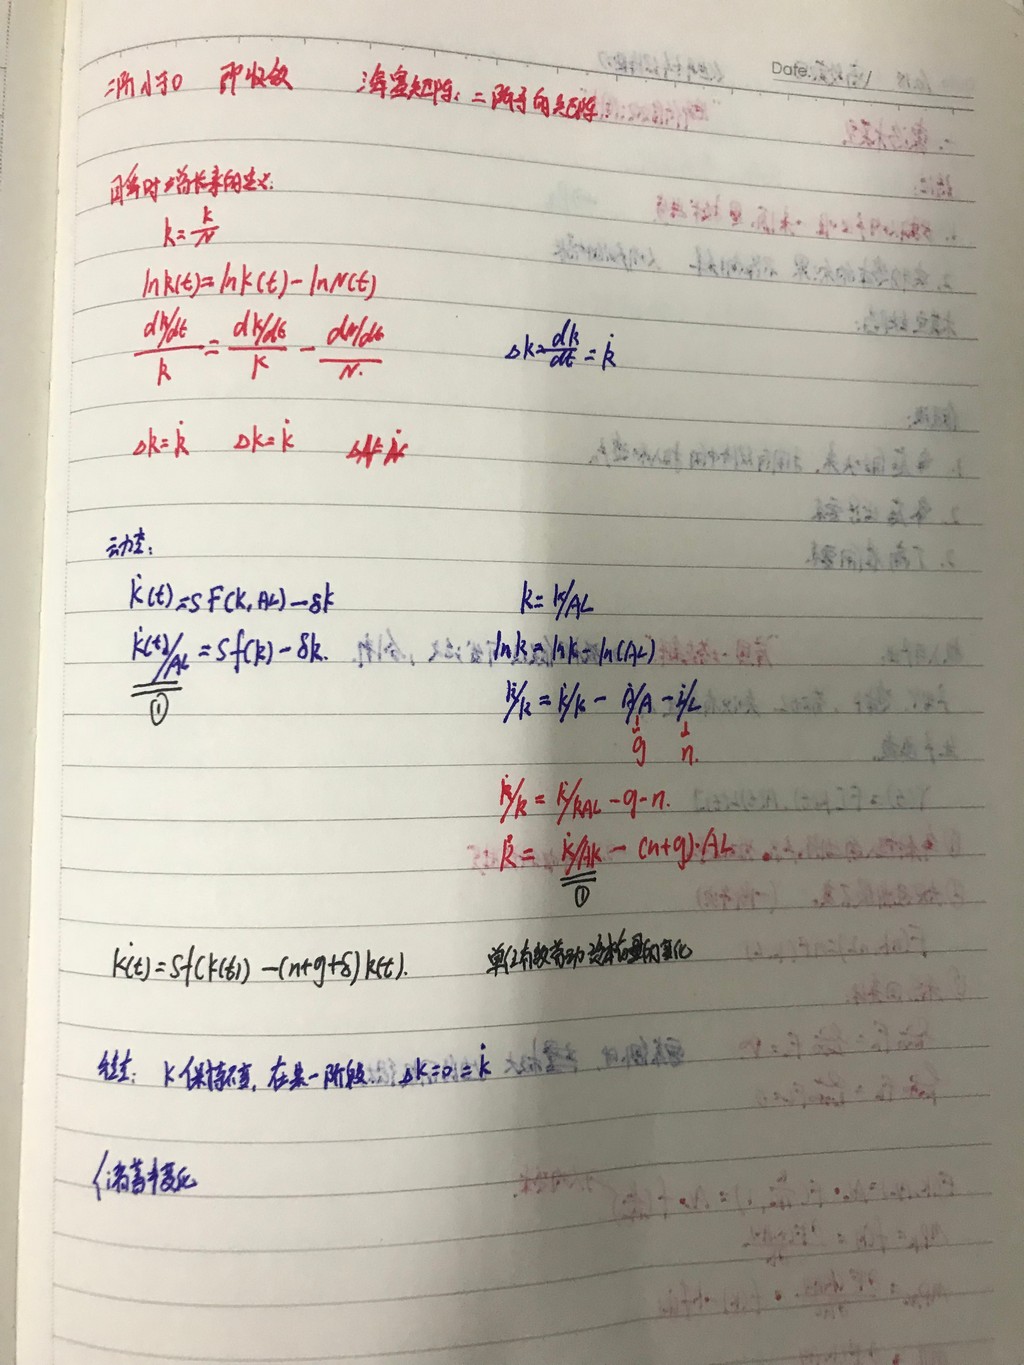 Date.
二阶小于0 即收敛 海塞矩阵：二阶导的矩阵
增长率的定义：
k=K/N
lnk(t)=lnK(t)-lnN(t)
(dk/dt)/k=(dK/dt)/K-(dN/dt)/N
Δk=dk/dt=k̇
Δk=k̇ ΔK=K̇ ΔN=Ṅ
动态：
K̇(t)=SF(K,AL)-δK k=K/AL
K̇(t)/AL=Sf(k)-δk. lnk=lnK-ln(AL)
① k̇/k=K̇/K-Ȧ/A-L̇/L
g n.
k̇/k=K̇/kAL-g-n.
k̇=K̇/AK-(n+g)·AL
①
k̇(t)=Sf(k(t))-(n+g+δ)k(t). 单位有效劳动资本存量的变化
稳态：K保持不变，在某一阶段. Δk=0=k̇
储蓄率变化